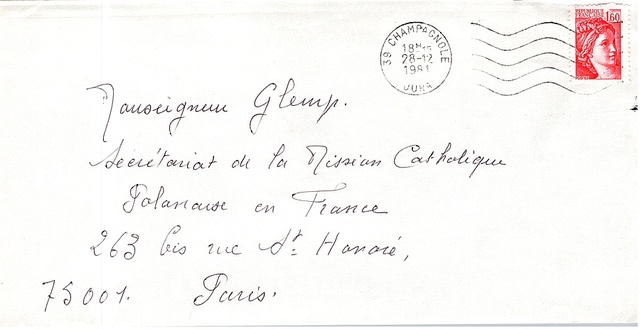 39 CHAMPAGNOLE
18H15
28-12
1981
JURA
REPUBLIQUE
FRANCAISE
1,60
Monseigneur Glemp.
Secrétariat de la Mission Catholique
Polonaise en France
263 bis rue St Honoré,
75001. Paris.